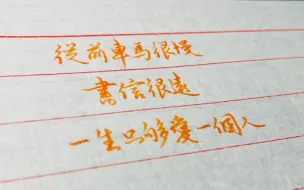 從前車馬很慢
書信很遠
一生只够愛一個人